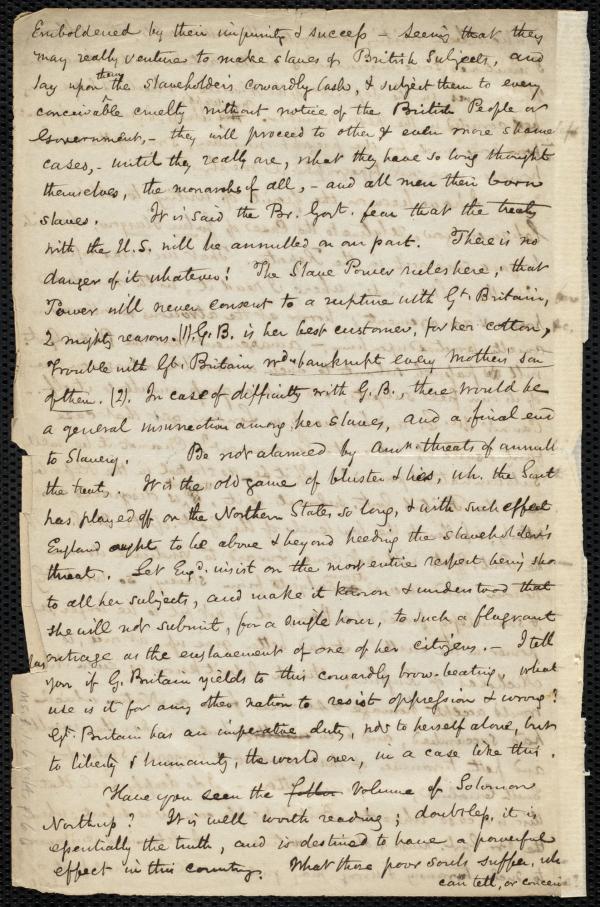 Emboldened by their impunity & success - seeing that they
may really venture to make slaves of British Subjects, and
lay upon them the slaveholder's cowardly lash, & subject them to every
conceivable cruelty without notice of the British People or
Government, - they will proceed to other & even more shame
cases, - until they really are, what they have so long thought
themselves, the monarchs of all, - and all men their born
slaves. It is said the Br. Govt. fear that the treaty
with the U.S. will be annulled on our part. There is no
danger of it whatever! The Slave Power rules here; that
Power will never consent to a rupture with Gt. Britain,
2 mighty reasons. (1). G.B. is her best customer, for her cotton,
Trouble with Gt. Britain wd. bankrupt every mother's son
of them. (2). In case of difficulty with G.B., there would be
a general insurrection among her slaves, and a final end
to Slavery. Be not alarmed by any threats of annull
the treaty. It is the old game of bluster & lies, wh. the South
has played off on the Northern States so long, & with such effect
England ought to be above & beyond heeding the slaveholder's
threat. Let Engd. insist on the most entire respect being sho
to all her subjects, and make it known & understood that
she will not submit, for a single hour, to such a flagrant
outrage as the enslavement of one of her citizens. - I tell
you if G. Britain yields to this cowardly brow-beating, what
use is it for any other nation to resist oppression & wrong?
Gt. Britain has an imperative duty, not to herself alone, but
to liberty & humanity, the world over, in a case like this.
Have you seen the volume of Solomon
Northup? It is well worth reading; doubtless, it is
essentially the truth, and is destined to have a powerful
effect in this country. What those poor souls suffer, who
can tell, or concei